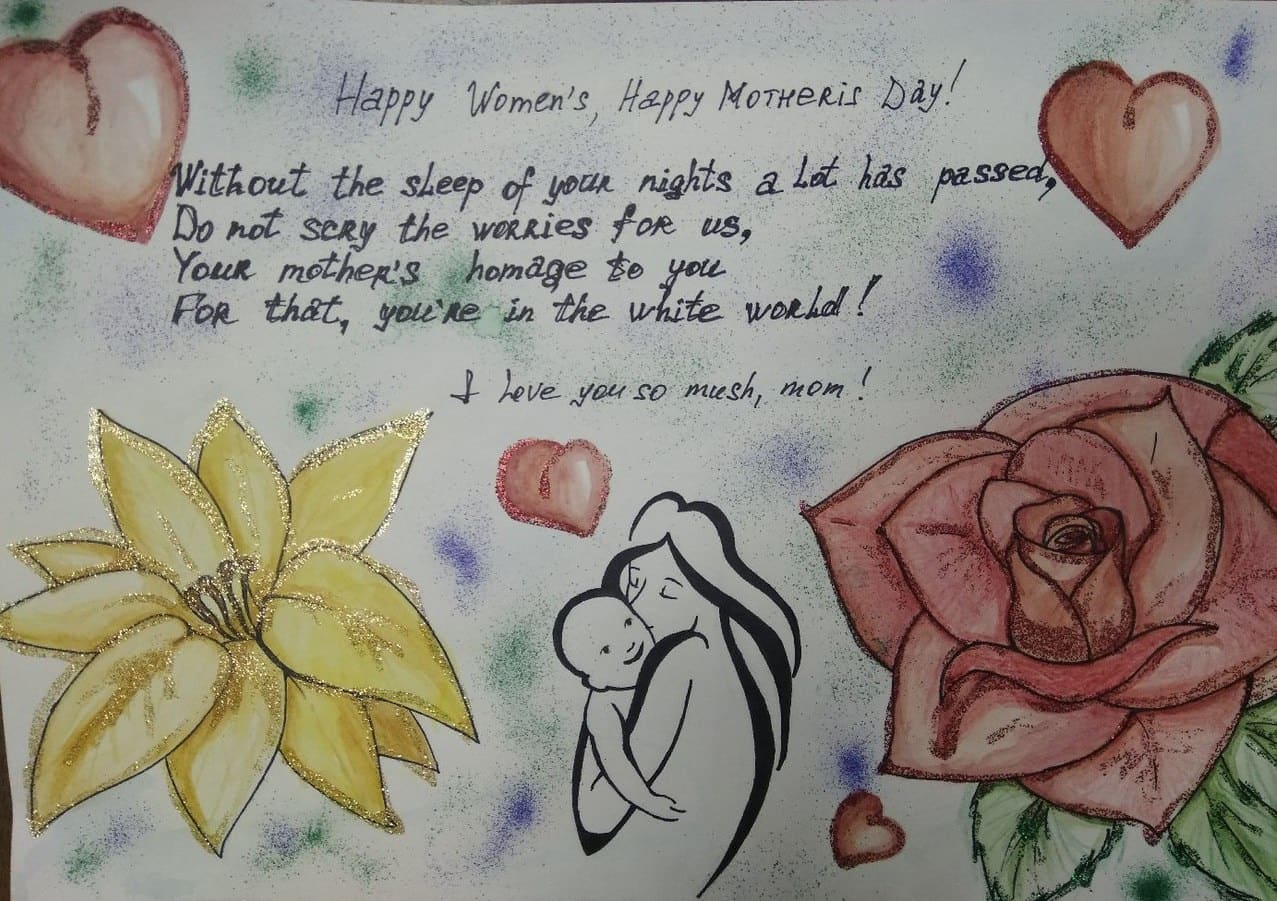 Happy Women's, Happy MOTHERIS Day!
Without the sleep of your nights a Lot has passed,
Do not scry the worries for us,
Your mother's homage to you
For that, you're in the white world!
I Love you so mush, mom!